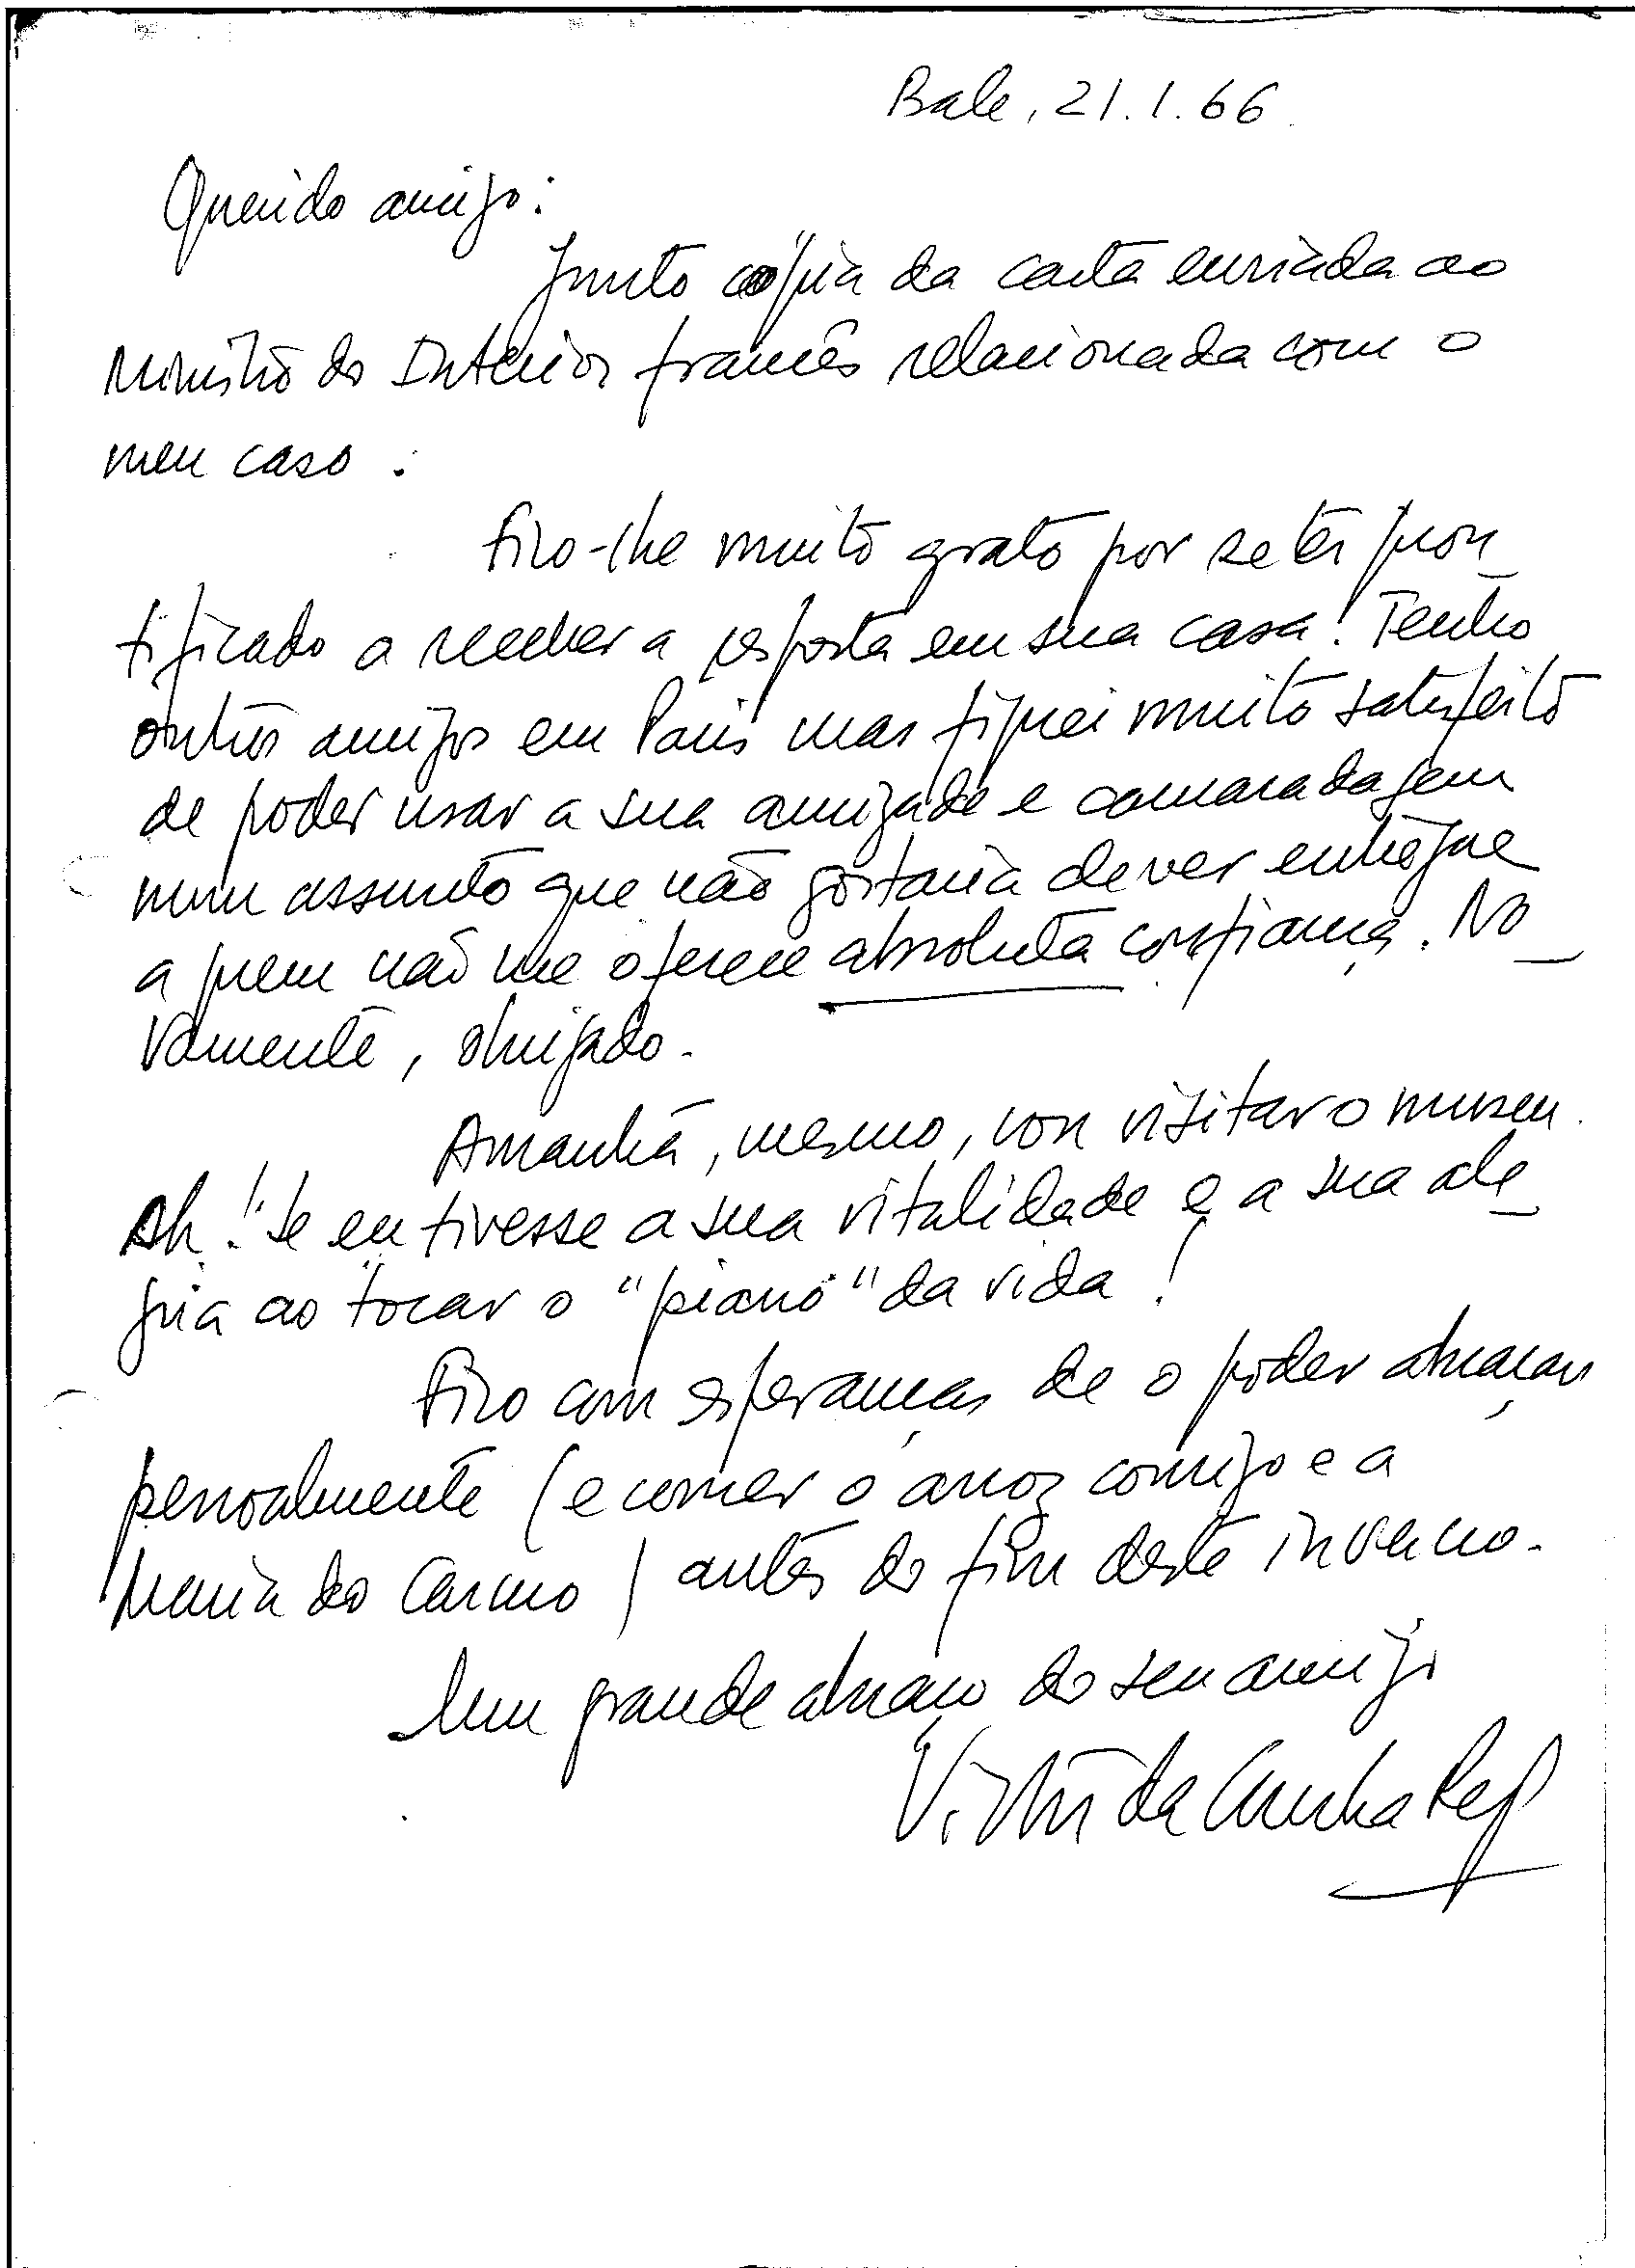 Bale, 21.1.66.
Querido amigo:
Junto cópia da carta enviada ao
Ministro do Interior francês relacionada com o
meu caso.
Fico-lhe muito grato por se ter pron_
tificado a receber a resposta em sua casa! Tenho
outros amigos em Paris mas fiquei muito satisfeito
de poder usar a sua amizade e camaradagem
num assunto que não gostaria de ver entregue
a quem não me oferece absoluta confiança. No_
vamente, obrigado.
Amanhã, mesmo, vou visitar o museu.
Ah! Se eu tivesse a sua vitalidade e a sua ale_
gria ao tocar o "piano" da vida!
Fico com esperanças de o poder abraçar
pessoalmente (e comer o arroz comigo e a
Maria do Carmo) antes do fim deste inverno.
Um grande abraço do seu amigo
Victor da Cunha Rego